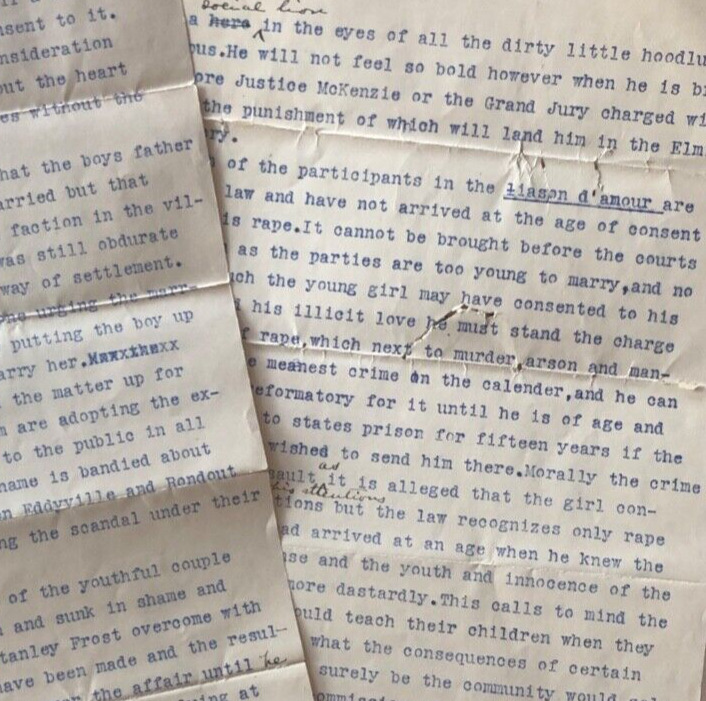 sent to it.
nsideration
out the heart
es without the
hat the boys father
arried but that
faction in the vil-
was still obdurate
way of settlement.
one urging the marr-
putting the boy up
arry her.Mxxxthexx
the matter up for
n are adopting the ex-
to the public in all
name is bandied about
n Eddyville and Rondout
ng the scandal under their
of the youthful couple
and sunk in shame and
tanley Frost overcome with
have been made and the resul-
the affair until he
at
social lion
a hero in the eyes of all the dirty little hoodlu
ous.He will not feel so bold however when he is b
ore Justice McKenzie or the Grand Jury charged wi
the punishment of which will land him in the Elm
ry.
of the participants in the liason d'amour are
law and have not arrived at the age of consent
is rape.It cannot be brought before the courts
as the parties are too young to marry,and no
ch the young girl may have consented to his
his illicit love he must stand the charge
f rape,which next to murder,arson and man-
e meanest crime on the calender,and he can
eformatory for it until he is of age and
to states prison for fifteen years if the
wished to send him there.Morally the crime
as
sault it is alleged that the girl con-
his attentions
tions but the law recognizes only rape
ad arrived at an age when he knew the
se and the youth and innocence of the
more dastardly.This calls to mind the
ould teach their children when they
what the consequences of certain
surely be the community would